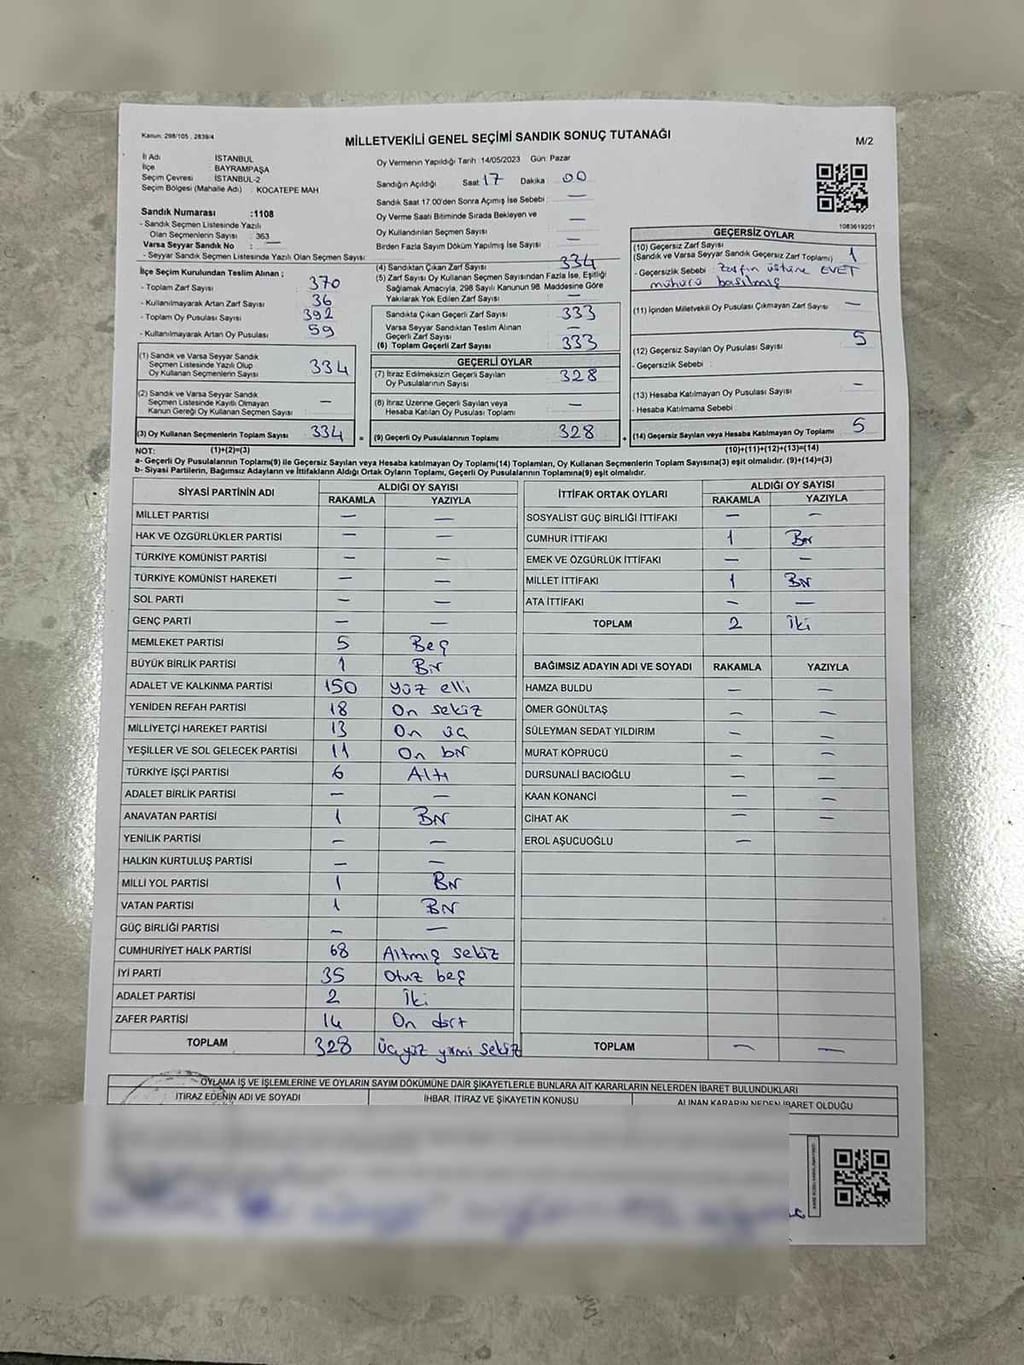 Kanun: 298/105 , 2839/4
MİLLETVEKİLİ GENEL SEÇİMİ SANDIK SONUÇ TUTANAĞI
M/2
İl Adı : İSTANBUL
İlçe : BAYRAMPAŞA
Seçim Çevresi : İSTANBUL-2
Seçim Bölgesi (Mahalle Adı) : KOCATEPE MAH
Sandık Numarası :1108
- Sandık Seçmen Listesinde Yazılı
Olan Seçmenlerin Sayısı : 363
Varsa Seyyar Sandık No : —
- Seyyar Sandık Seçmen Listesinde Yazılı Olan Seçmen Sayısı:
İlçe Seçim Kurulundan Teslim Alınan ;
- Toplam Zarf Sayısı 370
- Kullanılmayarak Artan Zarf Sayısı 36
- Toplam Oy Pusulası Sayısı 392
- Kullanılmayarak Artan Oy Pusulası 59
(1) Sandık ve Varsa Seyyar Sandık
Seçmen Listesinde Yazılı Olup
Oy Kullanan Seçmenlerin Sayısı 334
(2) Sandık ve Varsa Seyyar Sandık
Seçmen Listesinde Kayıtlı Olmayan
Kanun Gereği Oy Kullanan Seçmen Sayısı —
(3) Oy Kullanan Seçmenlerin Toplam Sayısı 334
Oy Vermenin Yapıldığı Tarih :14/05/2023 Gün: Pazar
Sandığın Açıldığı Saat 17 Dakika 00
Sandık Saat 17.00'den Sonra Açılmış İse Sebebi : —
Oy Verme Saati Bitiminde Sırada Bekleyen ve
Oy Kullandırılan Seçmen Sayısı —
Birden Fazla Sayım Döküm Yapılmış İse Sayısı —
(4) Sandıktan Çıkan Zarf Sayısı 334
(5) Zarf Sayısı Oy Kullanan Seçmen Sayısından Fazla İse, Eşitliği
Sağlamak Amacıyla, 298 Sayılı Kanunun 98. Maddesine Göre
Yakılarak Yok Edilen Zarf Sayısı —
Sandıkta Çıkan Geçerli Zarf Sayısı 333
Varsa Seyyar Sandıktan Teslim Alınan
Geçerli Zarf Sayısı —
(6) Toplam Geçerli Zarf Sayısı 333
GEÇERLİ OYLAR
(7) İtiraz Edilmeksizin Geçerli Sayılan
Oy Pusulalarının Sayısı 328
(8) İtiraz Üzerine Geçerli Sayılan veya
Hesaba Katılan Oy Pusulası Toplamı —
= (9) Geçerli Oy Pusulalarının Toplamı 328
1083619201
GEÇERSİZ OYLAR
(10) Geçersiz Zarf Sayısı
(Sandık ve Varsa Seyyar Sandık Geçersiz Zarf Toplamı) 1
- Geçersizlik Sebebi : Zarfın üstüne EVET
mühürü basılmış
(11) İçinden Milletvekili Oy Pusulası Çıkmayan Zarf Sayısı —
(12) Geçersiz Sayılan Oy Pusulası Sayısı 5
- Geçersizlik Sebebi :
(13) Hesaba Katılmayan Oy Pusulası Sayısı —
- Hesaba Katılmama Sebebi
+ (14) Geçersiz Sayılan veya Hesaba Katılmayan Oy Toplamı 5
NOT: (1)+(2)=(3) (10)+(11)+(12)+(13)=(14)
a- Geçerli Oy Pusulalarının Toplamı(9) ile Geçersiz Sayılan veya Hesaba katılmayan Oy Toplamı(14) Toplamları, Oy Kullanan Seçmenlerin Toplam Sayısına(3) eşit olmalıdır. (9)+(14)=(3)
b- Siyasi Partilerin, Bağımsız Adayların ve İttifakların Aldığı Oy Sayıları Toplamı, Geçerli Oy Pusulalarının Toplamına(9) eşit olmalıdır.
SİYASİ PARTİNİN ADI ALDIĞI OY SAYISI
RAKAMLA YAZIYLA
MİLLET PARTİSİ — —
HAK VE ÖZGÜRLÜKLER PARTİSİ — —
TÜRKİYE KOMÜNİST PARTİSİ — —
TÜRKİYE KOMÜNİST HAREKETİ — —
SOL PARTİ — —
GENÇ PARTİ — —
MEMLEKET PARTİSİ 5 Beş
BÜYÜK BİRLİK PARTİSİ 1 Bir
ADALET VE KALKINMA PARTİSİ 150 yüz elli
YENİDEN REFAH PARTİSİ 18 On sekiz
MİLLİYETÇİ HAREKET PARTİSİ 13 On üç
YEŞİLLER VE SOL GELECEK PARTİSİ 11 On bir
TÜRKİYE İŞÇİ PARTİSİ 6 Altı
ADALET BİRLİK PARTİSİ — —
ANAVATAN PARTİSİ 1 Bir
YENİLİK PARTİSİ — —
HALKIN KURTULUŞ PARTİSİ — —
MİLLİ YOL PARTİSİ 1 Bir
VATAN PARTİSİ 1 Bir
GÜÇ BİRLİĞİ PARTİSİ — —
CUMHURİYET HALK PARTİSİ 68 Altmış sekiz
İYİ PARTİ 35 Otuz beş
ADALET PARTİSİ 2 İki
ZAFER PARTİSİ 14 On dört
TOPLAM 328 Üçyüz yirmi sekiz
İTTİFAK ORTAK OYLARI ALDIĞI OY SAYISI
RAKAMLA YAZIYLA
SOSYALİST GÜÇ BİRLİĞİ İTTİFAKI — —
CUMHUR İTTİFAKI 1 Bir
EMEK VE ÖZGÜRLÜK İTTİFAKI — —
MİLLET İTTİFAKI 1 Bir
ATA İTTİFAKI — —
TOPLAM 2 İki
BAĞIMSIZ ADAYIN ADI VE SOYADI RAKAMLA YAZIYLA
HAMZA BULDU — —
ÖMER GÖNÜLTAŞ — —
SÜLEYMAN SEDAT YILDIRIM — —
MURAT KÖPRÜCÜ — —
DURSUNALİ BACIOĞLU — —
KAAN KONANCİ — —
CİHAT AK — —
EROL AŞUCUOĞLU —
TOPLAM — —
OYLAMA İŞ VE İŞLEMLERİNE VE OYLARIN SAYIM DÖKÜMÜNE DAİR ŞİKAYETLERLE BUNLARA AİT KARARLARIN NELERDEN İBARET BULUNDUKLARI
İTİRAZ EDENİN ADI VE SOYADI İHBAR, İTİRAZ VE ŞİKAYETİN KONUSU ALINAN KARARIN NEDEN İBARET OLDUĞU